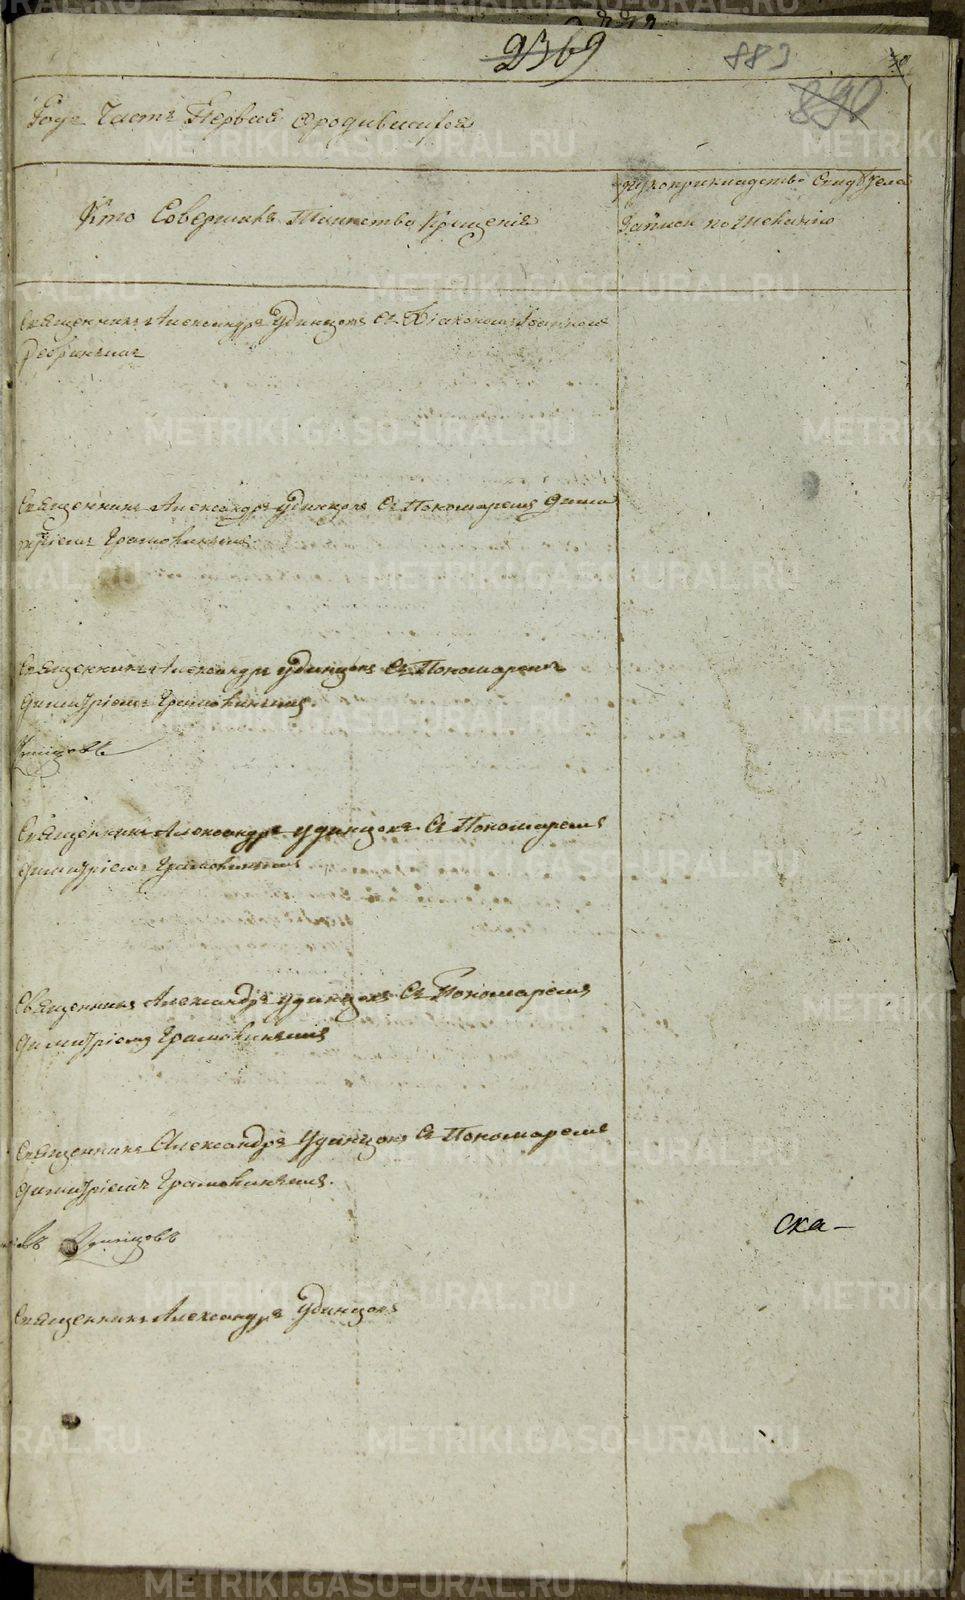 2369
883
890
30
Годѣ Часть Первая о родившихся
Кто Совершалъ Таинство Крещенія
рукоприкладство Свидѣтелей
записи по желанію
Священникъ Александръ Удинцовъ съ Діакономъ Іоанномъ
Священникъ Александръ Удинцовъ съ Пономаремъ Дими
тріемъ
Священникъ Александръ Удинцовъ съ Пономаремъ
Димитріемъ
Священникъ Александръ Удинцовъ съ Пономаремъ
Димитріемъ
Священникъ Александръ Удинцовъ съ Пономаремъ
Димитріемъ
Священникъ Александръ Удинцовъ съ Пономаремъ
Димитріемъ
Удинцовъ
ска-
Священникъ Александръ Удинцовъ
METRIKI.GASO-URAL.RU